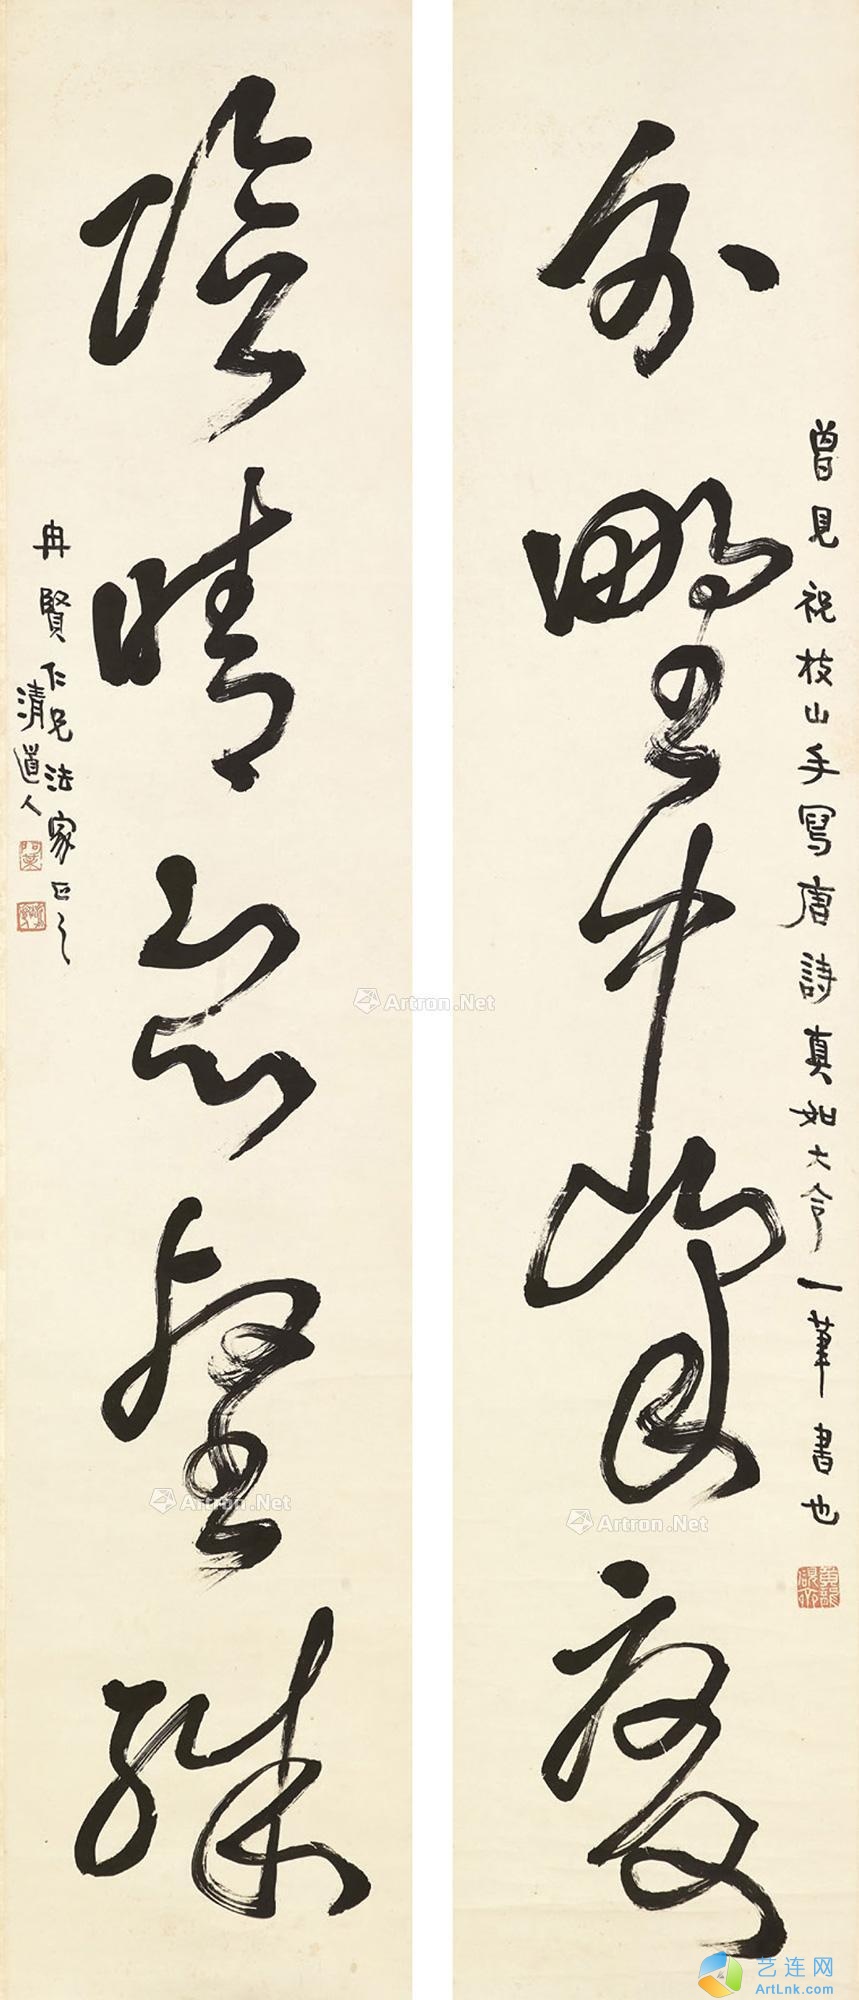 分野中峰变
曾見祝枝山手寫唐詩真如大令一筆書也
陰晴众壑殊
冉賢仁兄法家正之
清道人
Artron.Net
Artron.Net
Artron.Net
艺连网
ArtLnk.com